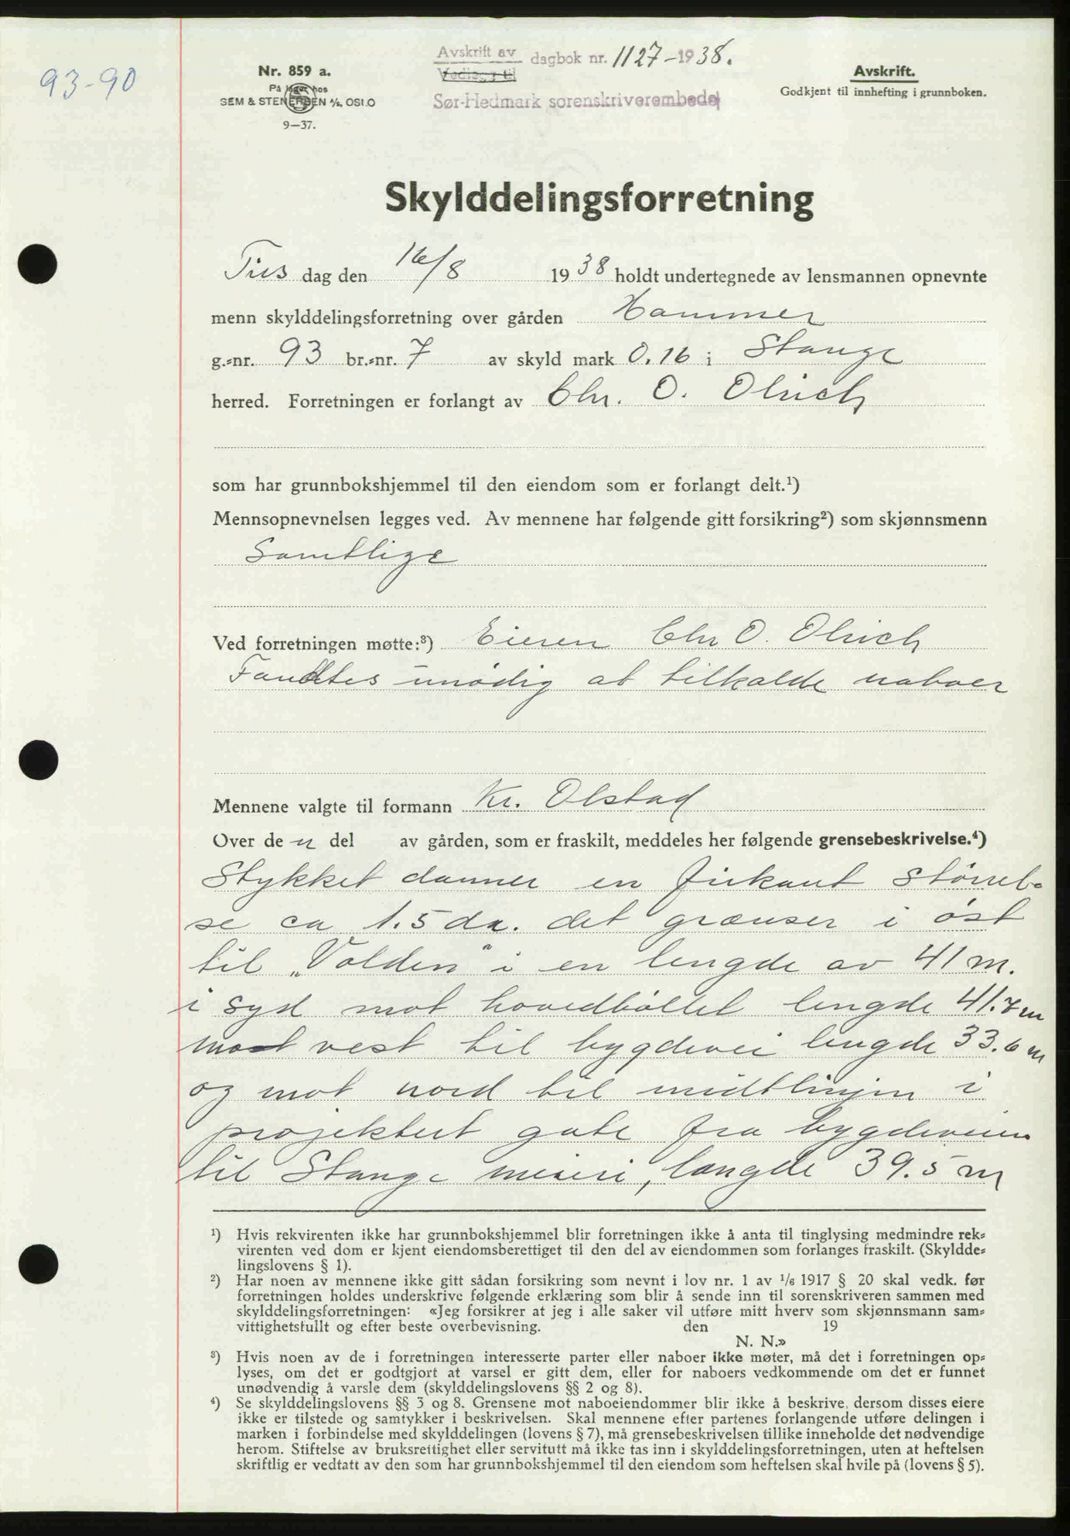 93-90
Nr. 859 a.
På lager hos
SEM & STENERSEN A/S, OSLO
9-37.
Avskrift av
Vedlegg til
dagbok nr. 1127-1938.
Sør-Hedmark sorenskriverembede
Avskrift.
Godkjent til innhefting i grunnboken.
Skylddelingsforretning
Tirs dag den 16/8 1938 holdt undertegnede av lensmannen opnevnte
menn skylddelingsforretning over gården Hammer
g.-nr. 93 br.-nr. 7 av skyld mark 0.16 i Stange
herred. Forretningen er forlangt av Chr. O. Olrich
som har grunnbokshjemmel til den eiendom som er forlangt delt.¹)
Mennsopnevnelsen legges ved. Av mennene har følgende gitt forsikring²) som skjønnsmenn
Samtlige
Ved forretningen møtte:³) Eieren Chr O. Olrich
Fandtes unødig at tilkalde naboer
Mennene valgte til formann Kr. Olstad
Over de n del av gården, som er fraskilt, meddeles her følgende grensebeskrivelse.⁴)
Stykket danner en firkant størrel-
se ca 1.5 da. det grænser i øst
til „Volden" i en lengde av 41 m.
i syd mot hovedbøllet lengde 41.7 m
mot vest til bygdevei lengde 33.6 m
og mot nord til midtlinjen i
projektert gate fra bygdeveien
til Stange meieri, længde 39.5 m
¹) Hvis rekvirenten ikke har grunnbokshjemmel blir forretningen ikke å anta til tinglysing medmindre rek-
virenten ved dom er kjent eiendomsberettiget til den del av eiendommen som forlanges fraskilt. (Skyldde-
lingslovens § 1).
²) Har noen av mennene ikke gitt sådan forsikring som nevnt i lov nr. 1 av 1/6 1917 § 20 skal vedk. før
forretningen holdes underskrive følgende erklæring som blir å sende inn til sorenskriveren sammen med
skylddelingsforretningen: «Jeg forsikrer at jeg i alle saker vil utføre mitt hverv som skjønnsmann sam-
vittighetsfullt og efter beste overbevisning. den 19
N. N.»
³) Hvis noen av de i forretningen interesserte parter eller naboer ikke møter, må det i forretningen op-
lyses, om det er godtgjort at varsel er gitt dem, eller for naboers vedkommende om det er funnet
unødvendig å varsle dem (skylddelingslovens §§ 2 og 8).
⁴) Se skylddelingslovens §§ 3 og 8. Grensene mot naboeiendommer blir ikke å beskrive, dersom disses eiere
ikke er tilstede og samtykker i beskrivelsen. Skal mennene efter partenes forlangende utføre delingen i
marken i forbindelse med skylddelingen (lovens § 7), må grensebeskrivelsen tillike inneholde det nødvendige
herom. Stiftelse av bruksrettighet eller servitutt må ikke tas inn i skylddelingsforretningen, uten at heftelsen
skriftlig er vedtatt av den som har grunnbokshjemmel til den eiendom som heftelsen skal hvile på (lovens § 5).